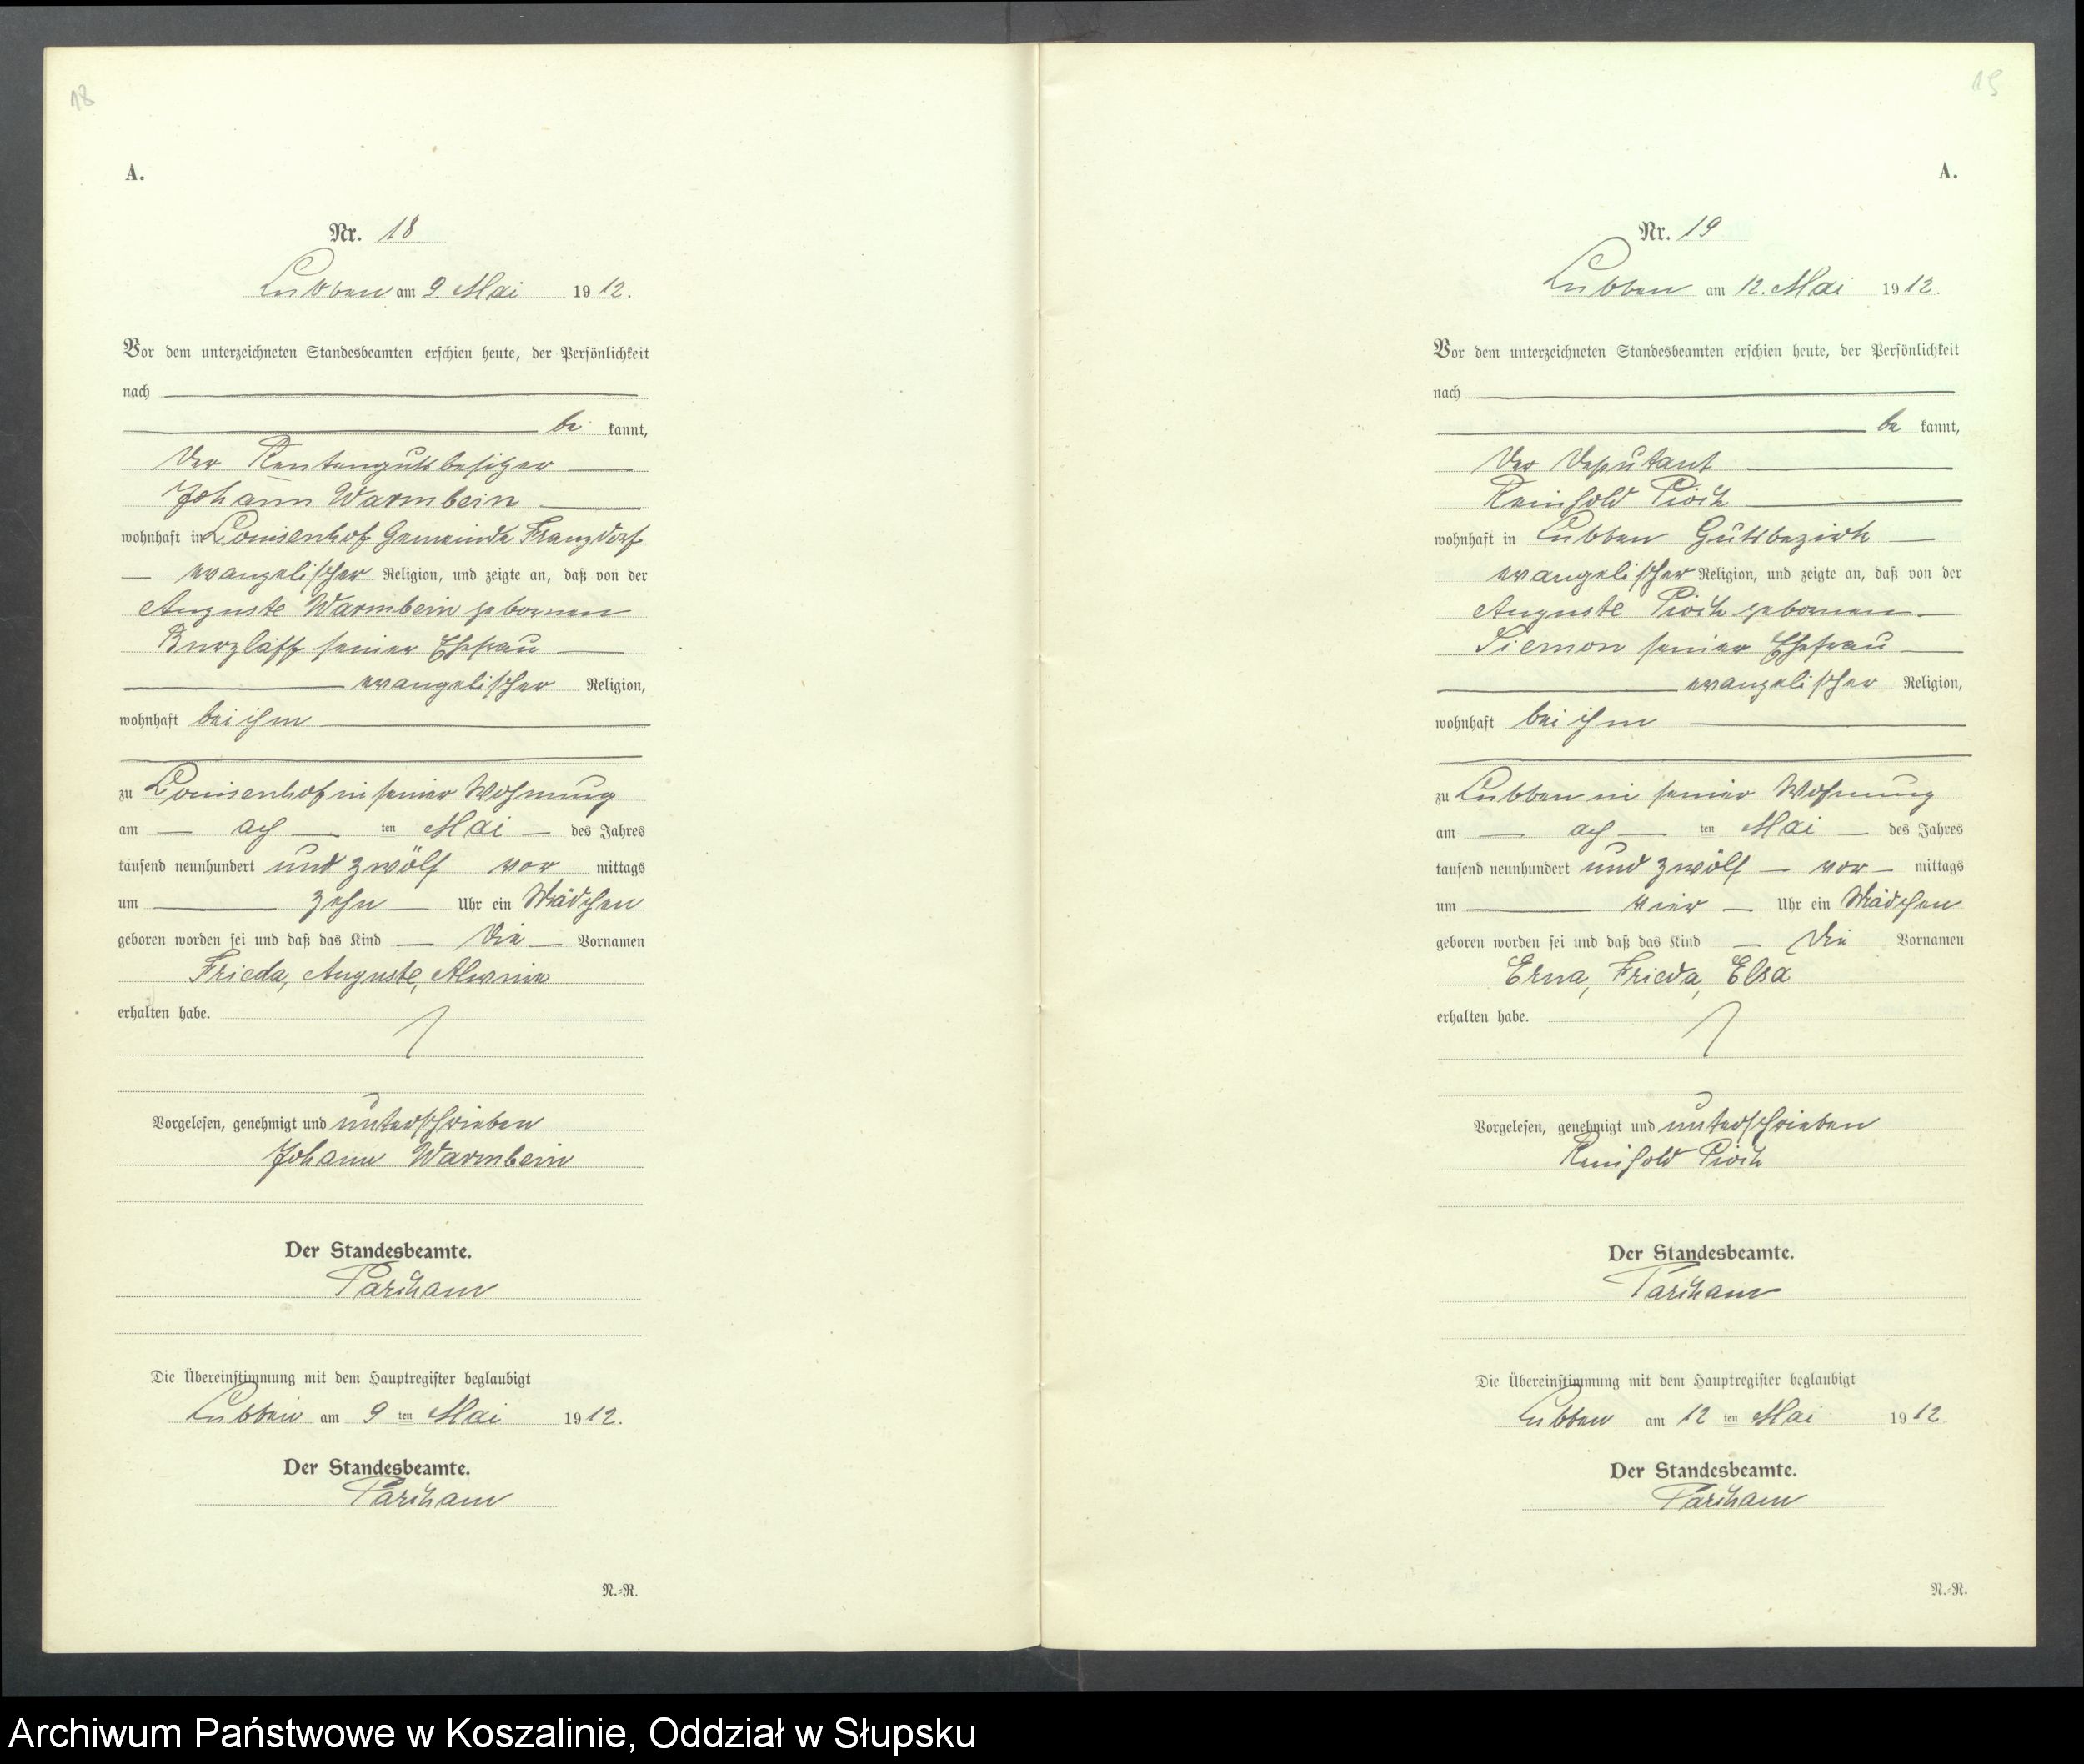 18
A.
Nr. 18
Lubben am 9. Mai 1912.
Vor dem unterzeichneten Standesbeamten erschien heute, der Persönlichkeit
nach
be kannt,
der Rentengutsbesitzer
Johann Warmbein
wohnhaft in Louisenhof Gemeinde Franzdorf
evangelischer Religion, und zeigte an, daß von der
Auguste Warmbein geborenen
Burzlaff seiner Ehefrau
evangelischer Religion,
wohnhaft bei ihm
zu Louisenhof in seiner Wohnung
am ach ten Mai des Jahres
tausend neunhundert und zwölf vor mittags
um zehn Uhr ein Mädchen
geboren worden sei und daß das Kind die Vornamen
Frieda, Auguste, Alwine
erhalten habe.
Vorgelesen, genehmigt und unterschrieben
Johann Warmbein
Der Standesbeamte.
Die Übereinstimmung mit dem Hauptregister beglaubigt
Lubben am 9 ten Mai 1912.
Der Standesbeamte.
N.-R.
19
A.
Nr. 19
Lubben am 12. Mai 1912.
Vor dem unterzeichneten Standesbeamten erschien heute, der Persönlichkeit
nach
be kannt,
der Deputant
Reinhold Pioch
wohnhaft in Lubben Gutsbezirk
evangelischer Religion, und zeigte an, daß von der
Auguste Pioch geborenen
Siemon seiner Ehefrau
evangelischer Religion,
wohnhaft bei ihm
zu Lubben in seiner Wohnung
am ach ten Mai des Jahres
tausend neunhundert und zwölf vor mittags
um vier Uhr ein Mädchen
geboren worden sei und daß das Kind die Vornamen
Erna, Frieda, Elsa
erhalten habe.
Vorgelesen, genehmigt und unterschrieben
Reinhold Pioch
Der Standesbeamte.
Die Übereinstimmung mit dem Hauptregister beglaubigt
Lubben am 12 ten Mai 1912
Der Standesbeamte.
N.-R.
Archiwum Państwowe w Koszalinie, Oddział w Słupsku